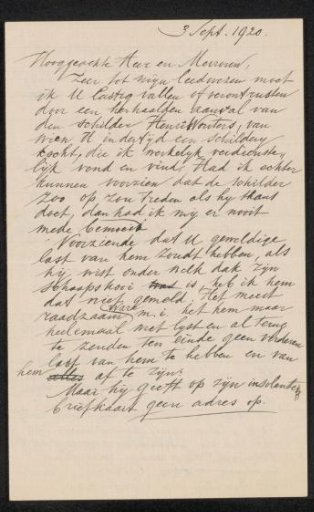 3 Sept. 1920.
Hooggeachte Heer en Mevrouw,
Zeer tot mijn leedwezen moet
ik U lastig vallen of verontrusten
door een herhaalden aanval van
den schilder Henri Wouters, van
wien U indertijd een schilderij
kocht, die ik werkelijk verdienste-
lijk vond en vind. Had ik echter
kunnen voorzien dat de schilder
zoo op zou treden als hij thans
doet, dan had ik mij er nooit
mede bemoeid
Voorziende dat U geweldige
last van hem zoudt hebben, als
hij wist onder welk dak zijn
schaapskooi is, heb ik hem
dat niet gemeld. Het meest
raadzaam ware m.i. het hem maar
heelemaal met lijst en al terug
te zenden ten einde geen verderen
last van hem te hebben en van
hem alles af te zijn.
Maar hij geeft op zijn insolente
briefkaart geen adres op.